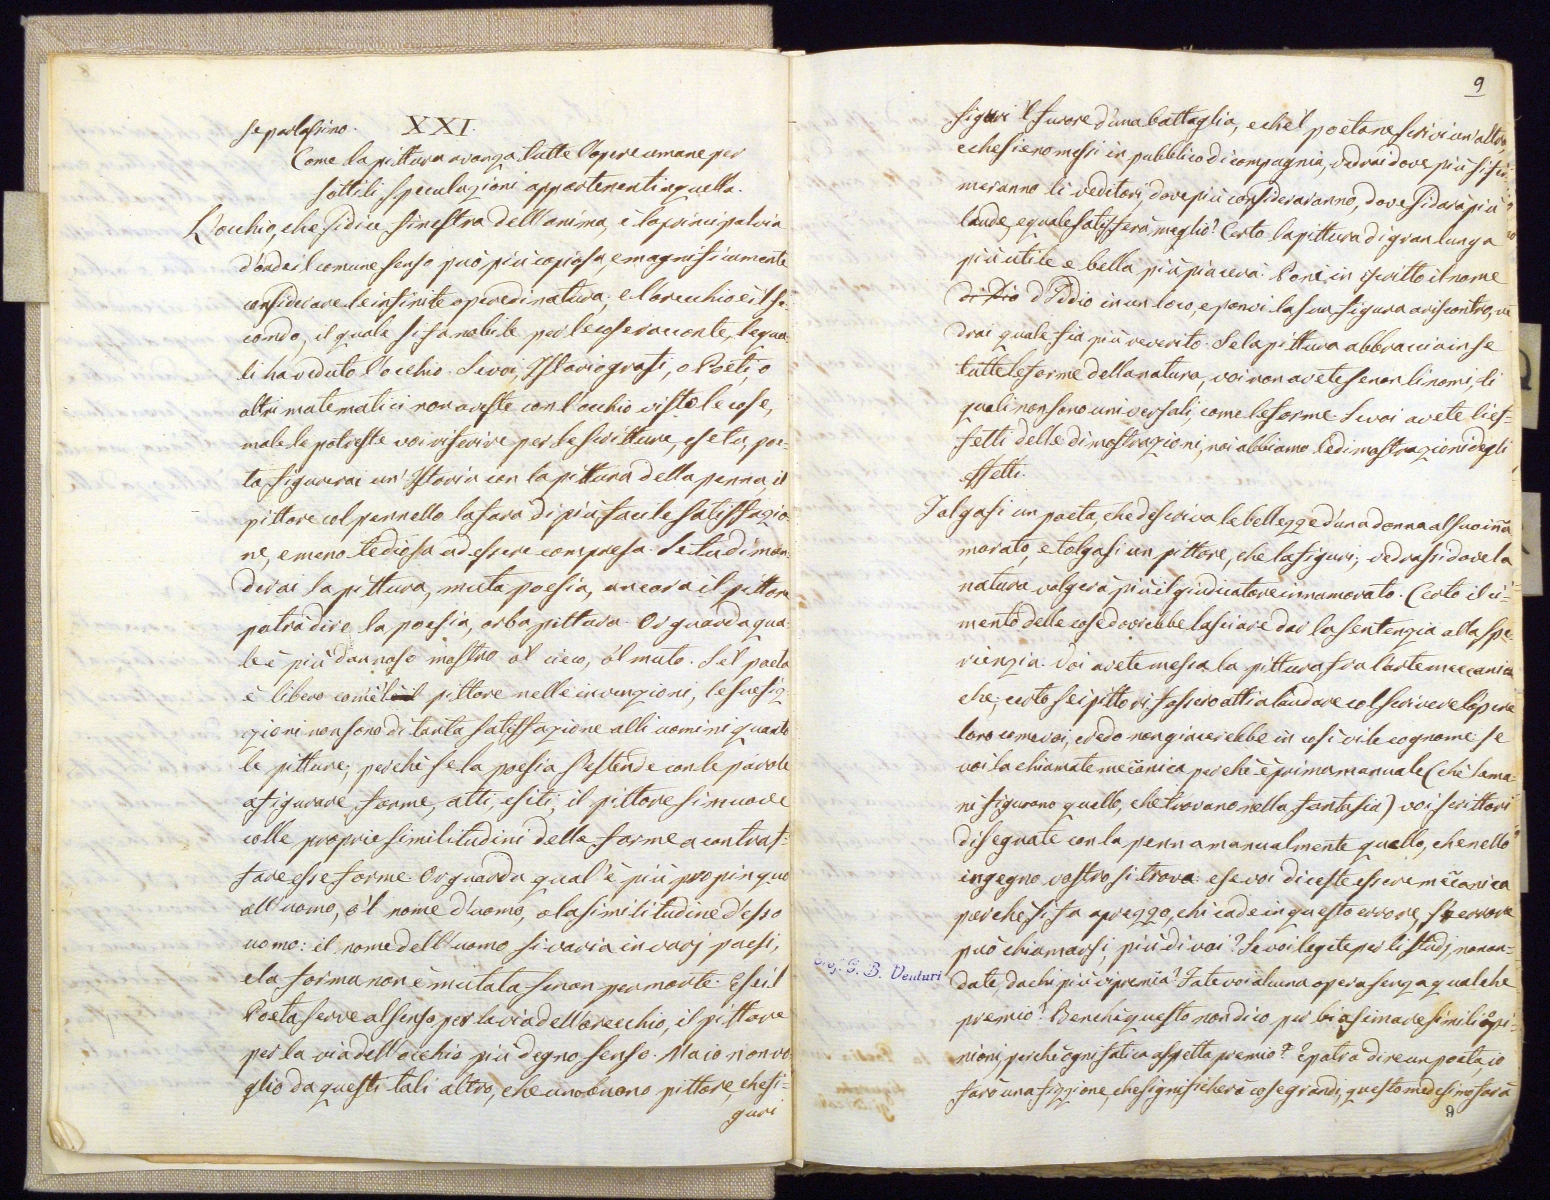 8
se parlassino. XXI.
Come la pittura avanza tutte l'opere umane per
sottili speculazioni appartenenti a quella.
L'occhio, che si dice finestra dell'anima, è la principal via
d'onde il comune senso può più copiosa, e magnificamente
considerare le infinite opere di natura, e l'orecchio è il se-
condo, il quale si fa nobile per le cose racconte, le qua-
li ha veduto l'occhio. Se voi, Istoriografi, o Poeti, o
altri matematici non aveste con l'occhio viste le cose,
male le potreste voi riferire per le scritture, e se tu, poe-
ta figurerai un' Istoria con la pittura della penna, il
pittore col pennello la farà di più facile satisfazio-
ne, e meno tediosa ad essere compresa. Se tu diman-
derai la pittura, muta poesia, ancora il pittore
potrà dire la poesia, orba pittura. Or guarda qua-
le è più dannoso mostro o'l cieco, o'l muto. Se'l poeta
è libero come'l pittore nelle invenzioni, le sue fiz-
zioni non sono di tanta satisfazione alli uomini quanto
le pitture, perchè se la poesia s'estende con le parole
a figurare forme, atti, e siti, il pittore si muove
colle proprie similitudini delle forme a contraf-
fare esse forme. Or guarda qual'è più propinquo
all'uomo, o'l nome d'uomo, o la similitudine d'esso
uomo: il nome dell'uomo si varia in varj paesi,
e la forma non è mutata se non per morte. E se il
Poeta serve al senso per la via dell'orecchio, il pittore
per la via dell'occhio più degno senso. Ma io non vo-
glio da questi tali altro, che uno buono pittore, che fi-
guri
9
figuri 'l furore d'una battaglia, e che'l poeta ne scrivi un altro,
e che sieno messi in pubblico di compagnia, vedrai dove più si fer-
meranno li veditori, dove più consideraranno, dove si darà più
laude, e quale satisferà meglio? Certo la pittura di gran lunga
più utile e bella più piacerà. Poni in iscritto il nome
di Dio d'Iddio in un loco, e ponvi la sua figura a riscontro, ve-
drai quale fia più reverito. Se la pittura abbraccia in se
tutte le forme della natura, voi non avete se non li nomi, li
quali non sono universali, come le forme. Se voi avete li ef-
fetti delle dimostrazioni, noi abbiamo le dimostrazioni degli
effetti.
Tolgasi un poeta, che descriva le bellezze d'una donna al suo inna
morato, e tolgasi un pittore, che la figuri, vedrassi dove la
natura volgerà più il giudicatore innamorato. Certo il ci-
mento delle cose dovrebbe lasciare dar la sentenzia alla spe-
rienzia. Voi avete messa la pittura fra l'arte meccanica
che, certo se i pittori fossero atti a laudare col scrivere l'opere
loro come voi, credo non giacerebbe in così vile cognome: se
voi la chiamate mecanica perchè è prima manuale (che le ma-
ni figurano quello, che trovano nella fantasia) voi scrittori
disegnate con la penna manualmente quello, che nello
ingegno vostro si trova: e se voi diceste essere mecanica
perchè si fa a prezzo, chi cade in questo errore, se errore
può chiamarsi, più di voi? Se voi leggete per li studj, non an-
date, da chi più vi premia? Fate voi alcuna opera senza qualche
premio? Benchè questo non dico per biasimare simili opi-
nioni, perchè ogni fatica aspetta premio? E potrà dire un poeta, io
farò una fizzione, che significherà cose grandi, questo medesimo farà
Prof. G. B. Venturi
9